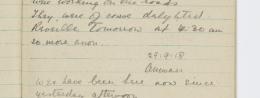 was working on the roads
They were of course delighted.
Reveille tomorrow at 4.30 am
so more anon.
29.9.18
We have been here now since
yesterday afternoon